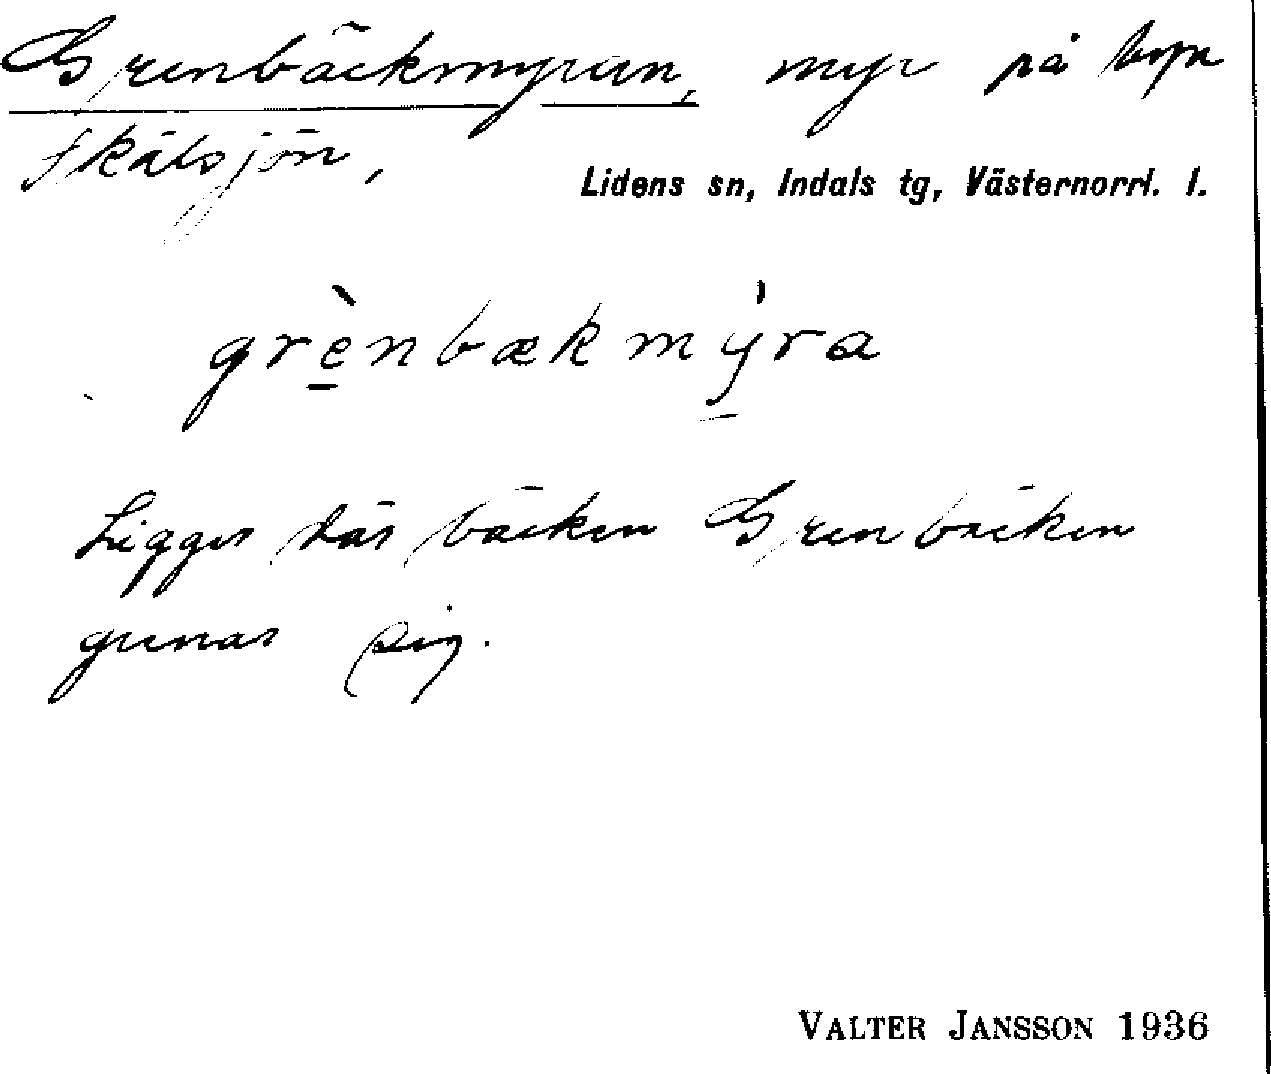 Grenbäckmyran, myr på byn
Skälsjön,
Lidens sn, Indals tg, Västernorrl. l.
grènbækmýra
Ligger där bäcken Grenbäcken
grenar sig.
VALTER JANSSON 1936